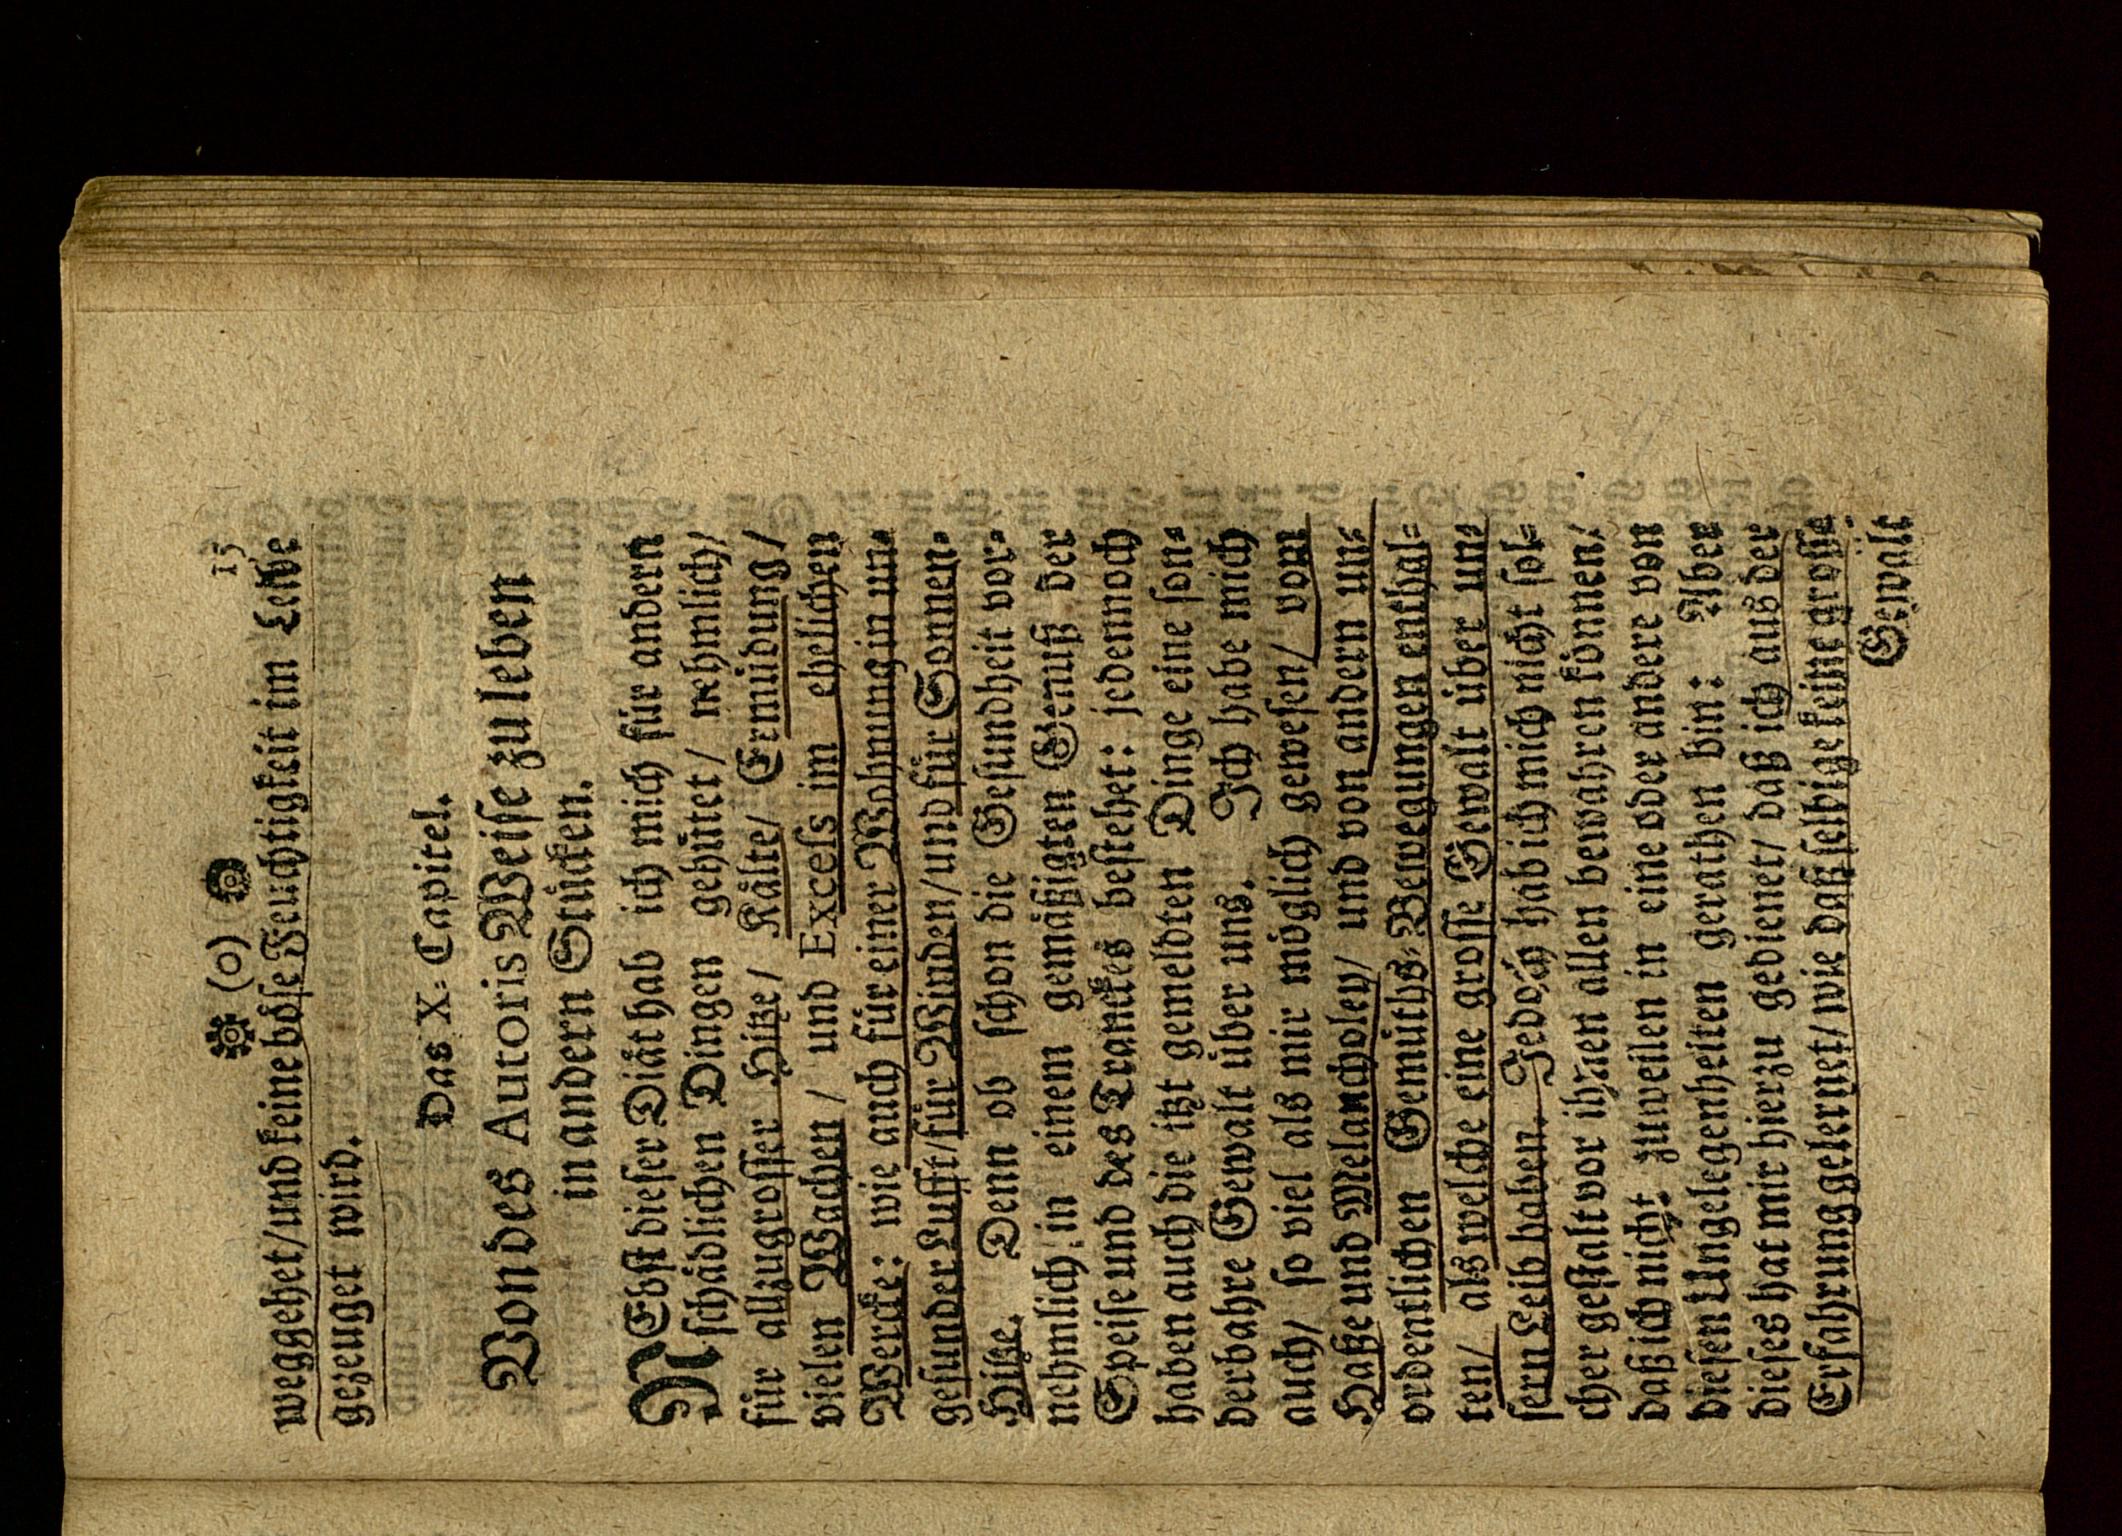 ❁ (o) ❁ 15
weggehet/ und keine böse Feuchtigkeit im Leibe
gezeuget wird.
Das X. Capitel.
Von des Autoris Weise zu leben
in andern Stücken.
NEbst dieser Diät hab ich mich für andern
schädlichen Dingen gehütet/ nehmlich/
für allzugrosser Hitze/ Kälte/ Ermüdung/
vielen Wachen/ und Excess im ehelichen
Wercke: wie auch für einer Wohnung in un-
gesunder Lufft/ für Winden/ und für Sonnen-
Hitze. Denn ob schon die Gesundheit vor-
nehmlich in einem gemäßigten Genuß der
Speise und des Tranckes bestehet: jedennoch
haben auch die itzt gemeldten Dinge eine son-
derbahre Gewalt über uns. Ich habe mich
auch/ so viel als mir möglich gewesen/ vom
Haße und Melancholey/ und von andern un-
ordentlichen Gemüths-Bewegungen enthal-
ten/ als welche eine grosse Gewalt über un-
sern Leib haben. Jedoch hab ich mich nicht sol-
cher gestalt vor ihnen allen bewahren können/
daß ich nicht zuweilen in eine oder andere von
diesen Ungelegenheiten gerathen bin: Aber
dieses hat mir hierzu gedienet/ daß ich aus der
Erfahrung gelernet/ wie daß selbige keine grosse
Gewalt